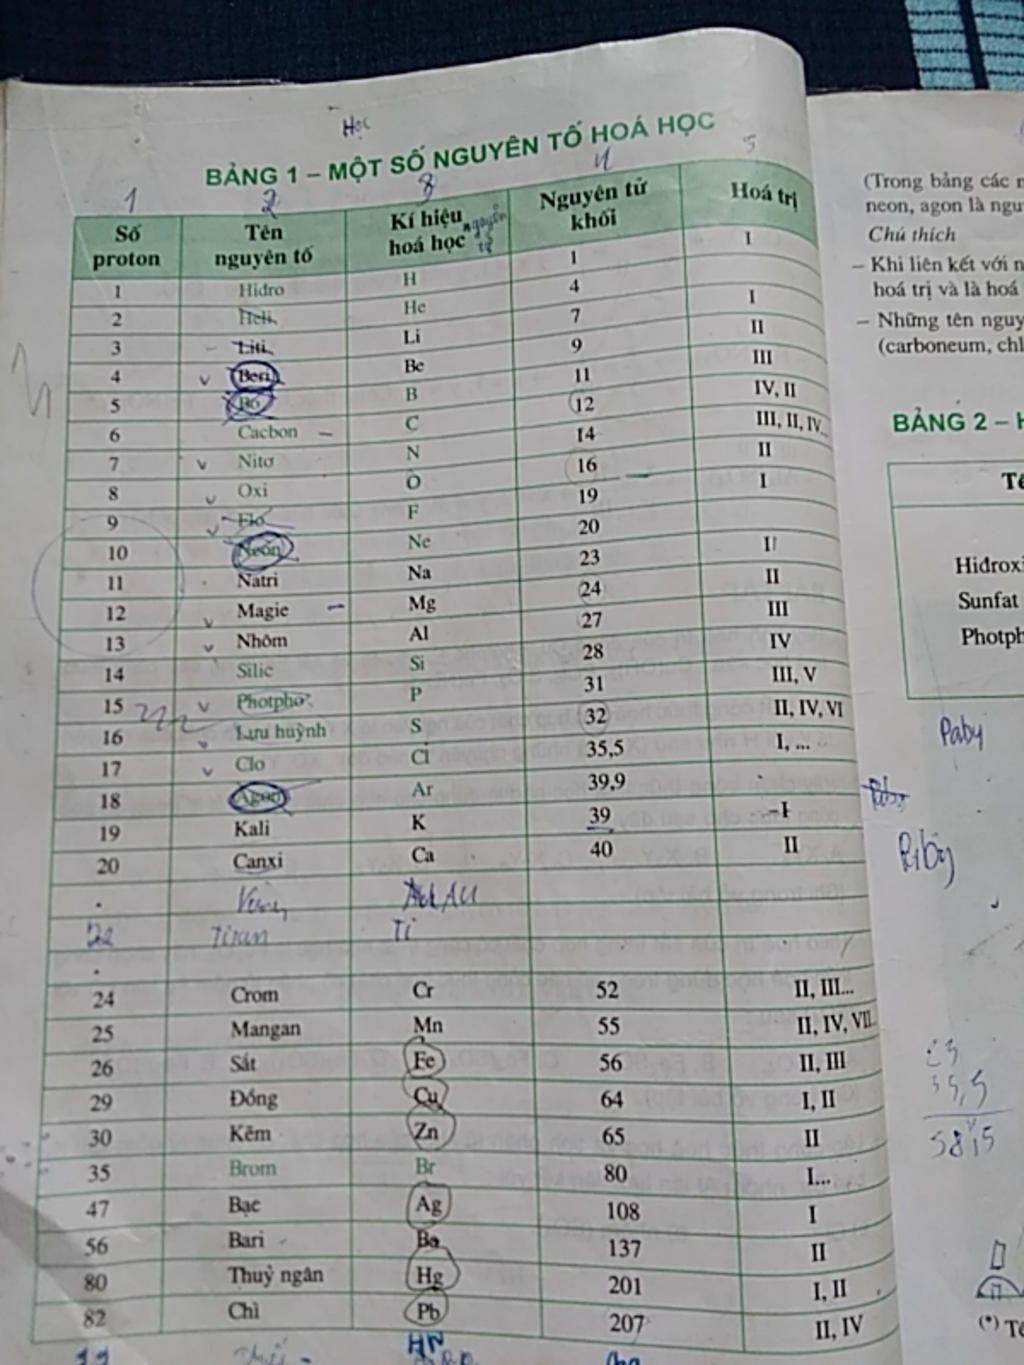 Học
BẢNG 1 – MỘT SỐ NGUYÊN TỐ HOÁ HỌC
1 2 3 4 5
Số proton Tên nguyên tố Kí hiệu hoá học nguyên tố Nguyên tử khối Hoá trị
1 Hiđro H 1 I
2 Heli He 4
3 Liti Li 7 I
4 Beri Be 9 II
5 Bo B 11 III
6 Cacbon C 12 IV, II
7 Nitơ N 14 III, II, IV...
8 Oxi O 16 II
9 Flo F 19 I
10 Neon Ne 20
11 Natri Na 23 I
12 Magie Mg 24 II
13 Nhôm Al 27 III
14 Silic Si 28 IV
15 Photpho P 31 III, V
16 Lưu huỳnh S 32 II, IV, VI
17 Clo Cl 35,5 I, ...
18 Agon Ar 39,9
19 Kali K 39 I
20 Canxi Ca 40 II
Vàng Au AU
22 Titan Ti
24 Crom Cr 52 II, III...
25 Mangan Mn 55 II, IV, VII...
26 Sắt Fe 56 II, III
29 Đồng Cu 64 I, II
30 Kẽm Zn 65 II
35 Brom Br 80 I...
47 Bạc Ag 108 I
56 Bari Ba 137 II
80 Thuỷ ngân Hg 201 I, II
82 Chì Pb 207 II, IV
(Trong bảng các
neon, agon là
Chú thích
– Khi liên kết với
hoá trị và là hoá
– Những tên
(carboneum,
BẢNG 2 –
Sunfat
Paby
Riby
23
35,5
58,5
(*)